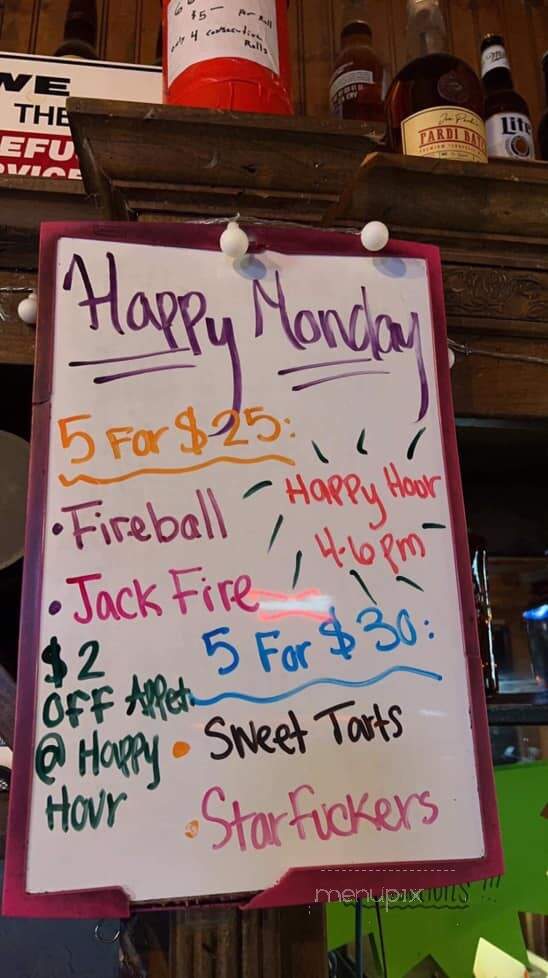 $5— per Roll
only 4 consecutive
Rolls
WE
THE
REFU
RVICE
Lite
PARDI BA
Happy Monday
5 For $25:
• Fireball
• Jack Fire
Happy Hour
4-6pm
5 For $30:
• Sweet Tarts
• Starfuckers
$2
OFF Appet.
@ Happy
Hour
menupix